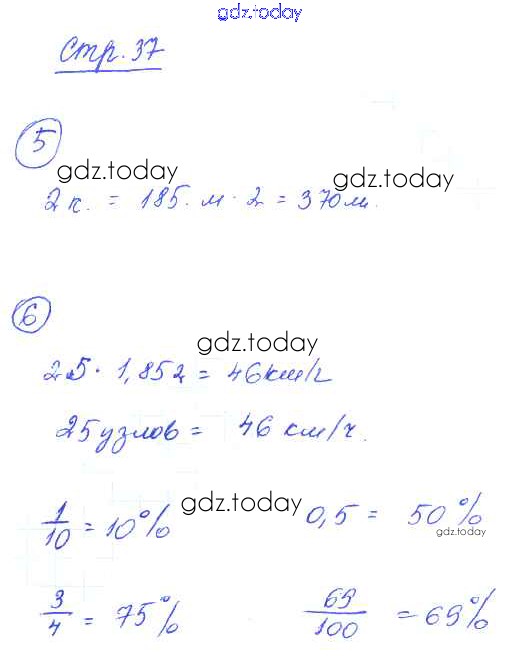 gdz.today
Стр. 37
5
gdz.today gdz.today
2 к. = 185. м · 2 = 370 м.
6
gdz.today
25 · 1,852 = 46 км/ч
25 узлов = 46 км/ч.
gdz.today
1/10 = 10% 0,5 = 50%
gdz.today
3/4 = 75% 69/100 = 69%